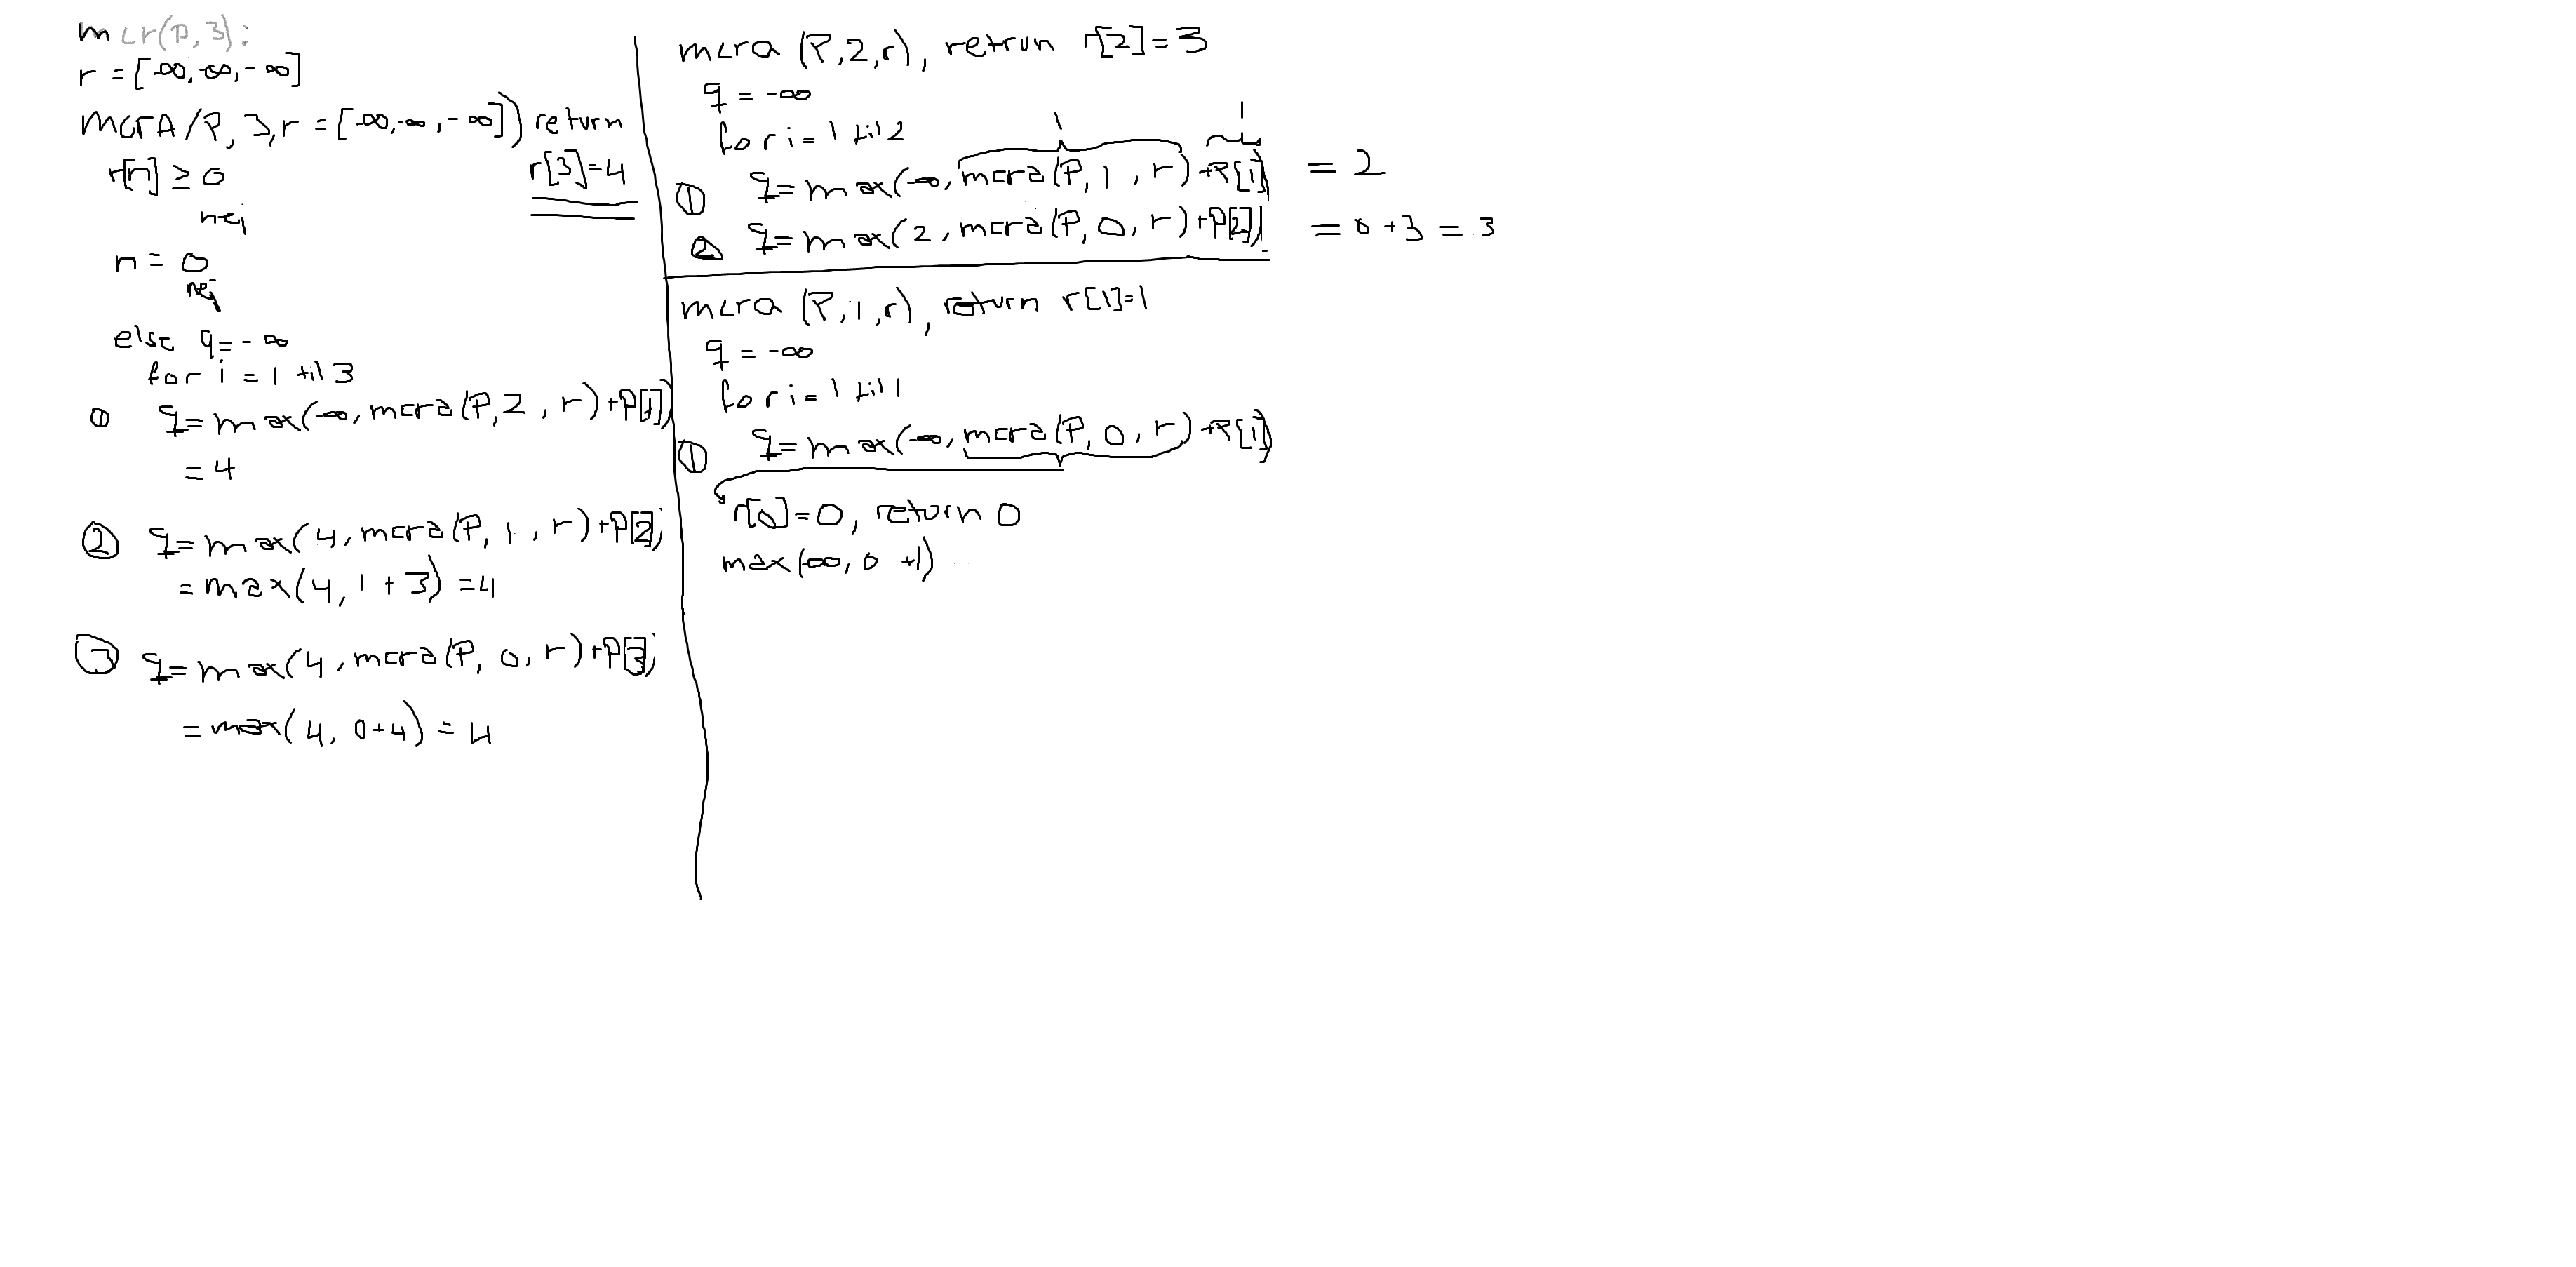 mcr(P,3):
r = [-∞,-∞,-∞]
mcrA(P, 3,r = [-∞,-∞,-∞]) return
r[3]=4
r[n] ≥ 0
nej
n = 0
nej
else q = -∞
for i = 1 til 3
① q = max(-∞, mcra(P, 2, r) +P[1])
= 4
② q = max(4, mcra(P, 1, r) +P[2])
= max(4, 1 + 3) = 4
③ q = max(4, mcra(P, 0, r) +P[3])
= max(4, 0+4) = 4
mcra (P,2,r), retrun r[2]=3
q = -∞
for i = 1 til 2
1 1
① q = max(-∞, mcra(P, 1, r) +P[1]) = 2
② q = max(2, mcra(P, 0, r) +P[2]) = 0 +3 = 3
mcra (P,1,r), return r[1]=1
q = -∞
for i = 1 til 1
① q = max(-∞, mcra(P, 0, r) +P[1])
r[0]=0, return 0
max(-∞, 0 +1)